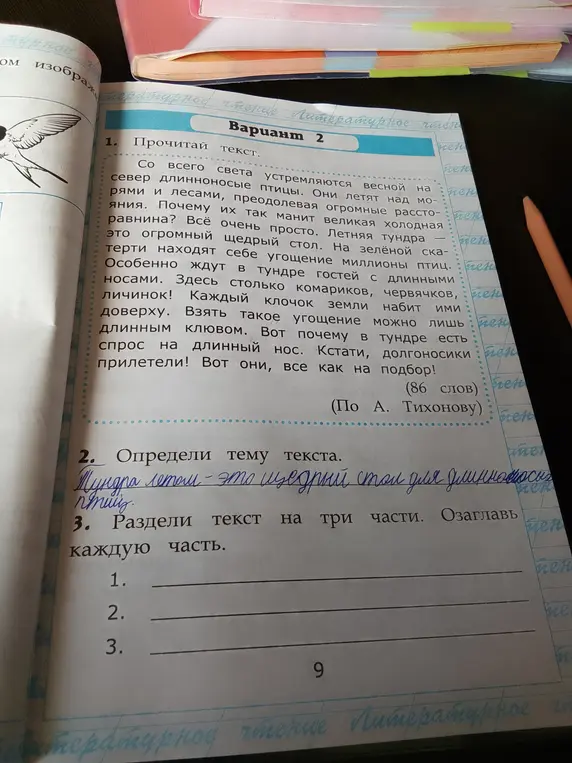 ом изображе
Литературное чтение Литературное чтен
Вариант 2
1. Прочитай текст.
Со всего света устремляются весной на
север длинноносые птицы. Они летят над мо-
рями и лесами, преодолевая огромные рассто-
яния. Почему их так манит великая холодная
равнина? Всё очень просто. Летняя тундра —
это огромный щедрый стол. На зелёной ска-
терти находят себе угощение миллионы птиц.
Особенно ждут в тундре гостей с длинными
носами. Здесь столько комариков, червячков,
личинок! Каждый клочок земли набит ими
доверху. Взять такое угощение можно лишь
длинным клювом. Вот почему в тундре есть
спрос на длинный нос. Кстати, долгоносики
прилетели! Вот они, все как на подбор!
(86 слов)
(По А. Тихонову)
2. Определи тему текста.
Тундра летом - это щедрый стол для длинноносых
птиц.
3. Раздели текст на три части. Озаглавь
каждую часть.
1.
2.
3.
9
Литературное чтение Литературное чтен